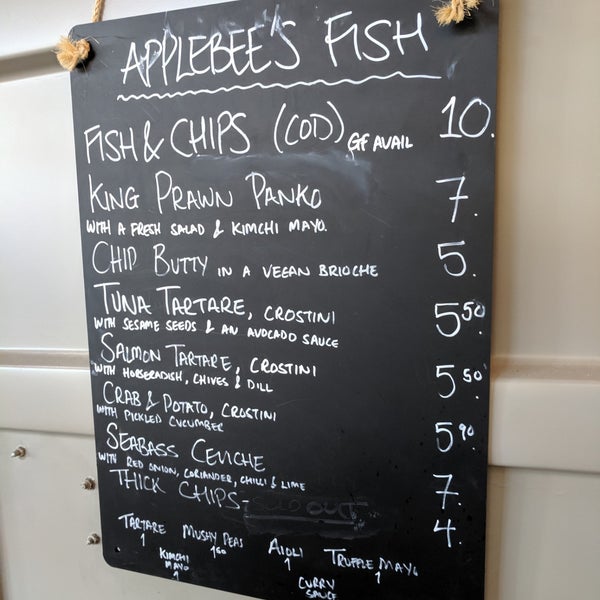 APPLEBEE'S FISH
FISH & CHIPS (COD) GF AVAIL 10.
KING PRAWN PANKO 7.
WITH A FRESH SALAD & KIMCHI MAYO.
CHIP BUTTY IN A VEGAN BRIOCHE 5.
TUNA TARTARE, CROSTINI 5.50
WITH SESAME SEEDS & AN AVOCADO SAUCE
SALMON TARTARE, CROSTINI 5.50
WITH HORSERADISH, CHIVES & DILL
CRAB & POTATO, CROSTINI 5.90
WITH PICKLED CUCUMBER
SEABASS CEVICHE 7.
WITH RED ONION, CORIANDER, CHILLI & LIME
THICK CHIPS- 4.
TARTARE MUSHY PEAS AIOLI TRUFFLE MAYO
1 1.60 1 1
KIMCHI MAYO 1
CURRY SAUCE